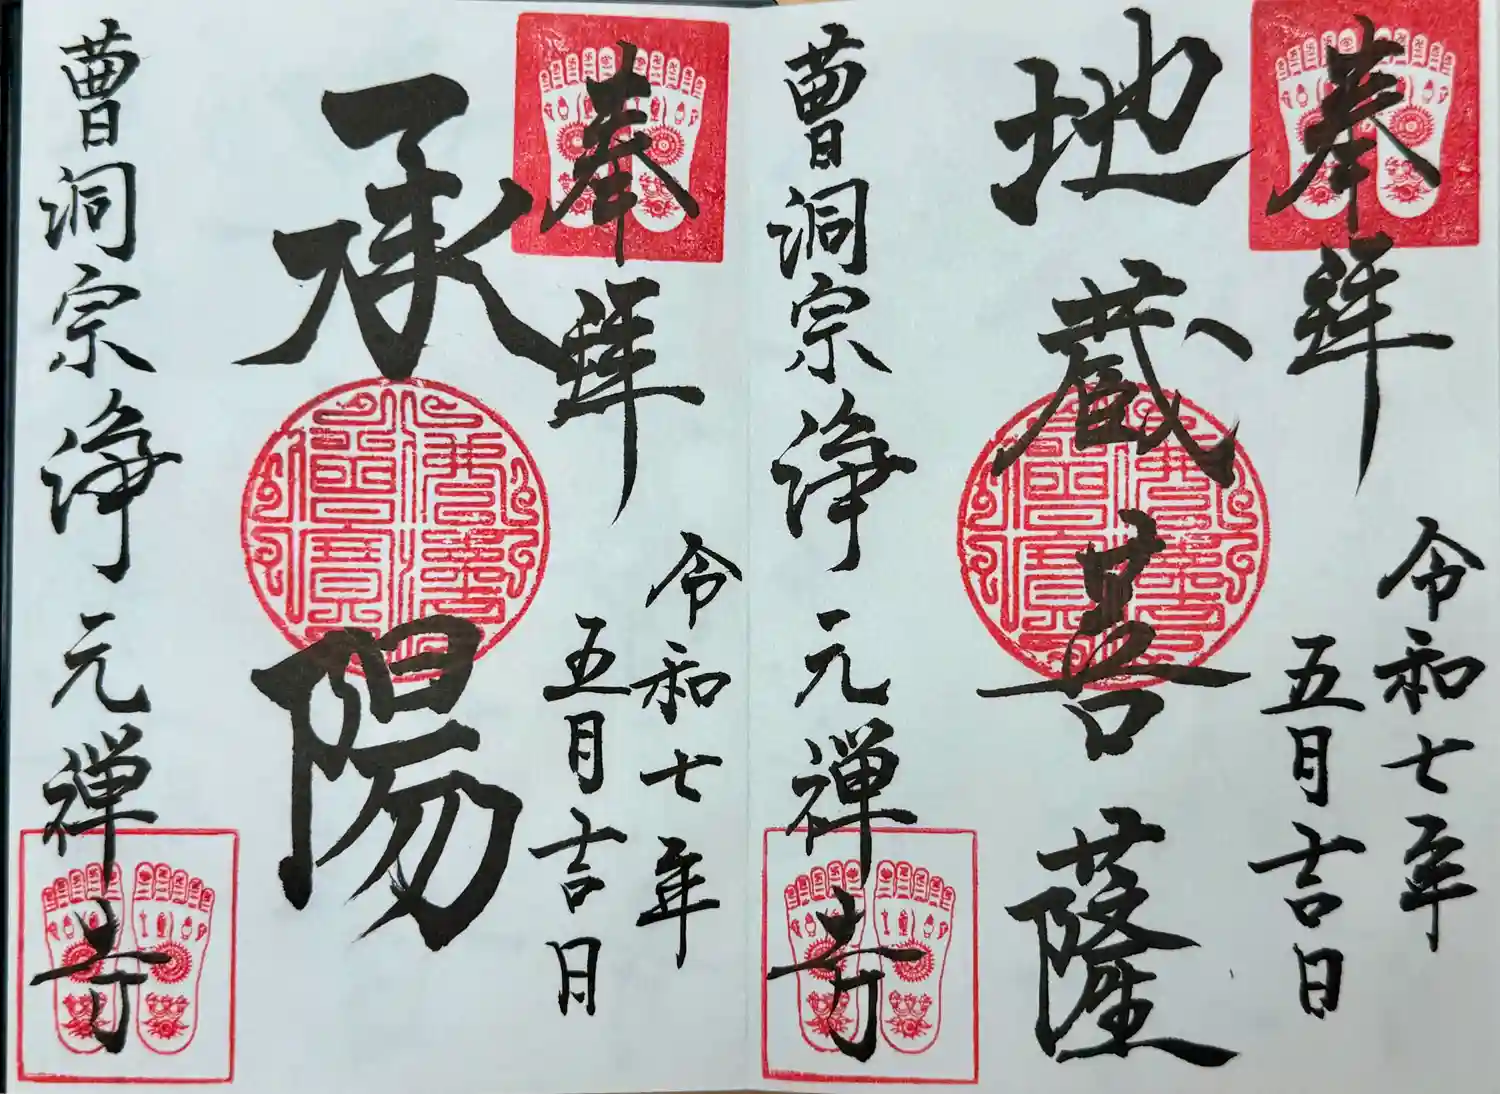 奉拝
令和七年
五月吉日
地蔵菩薩
曹洞宗浄元禅寺
奉拝
令和七年
五月吉日
承陽
曹洞宗浄元禅寺